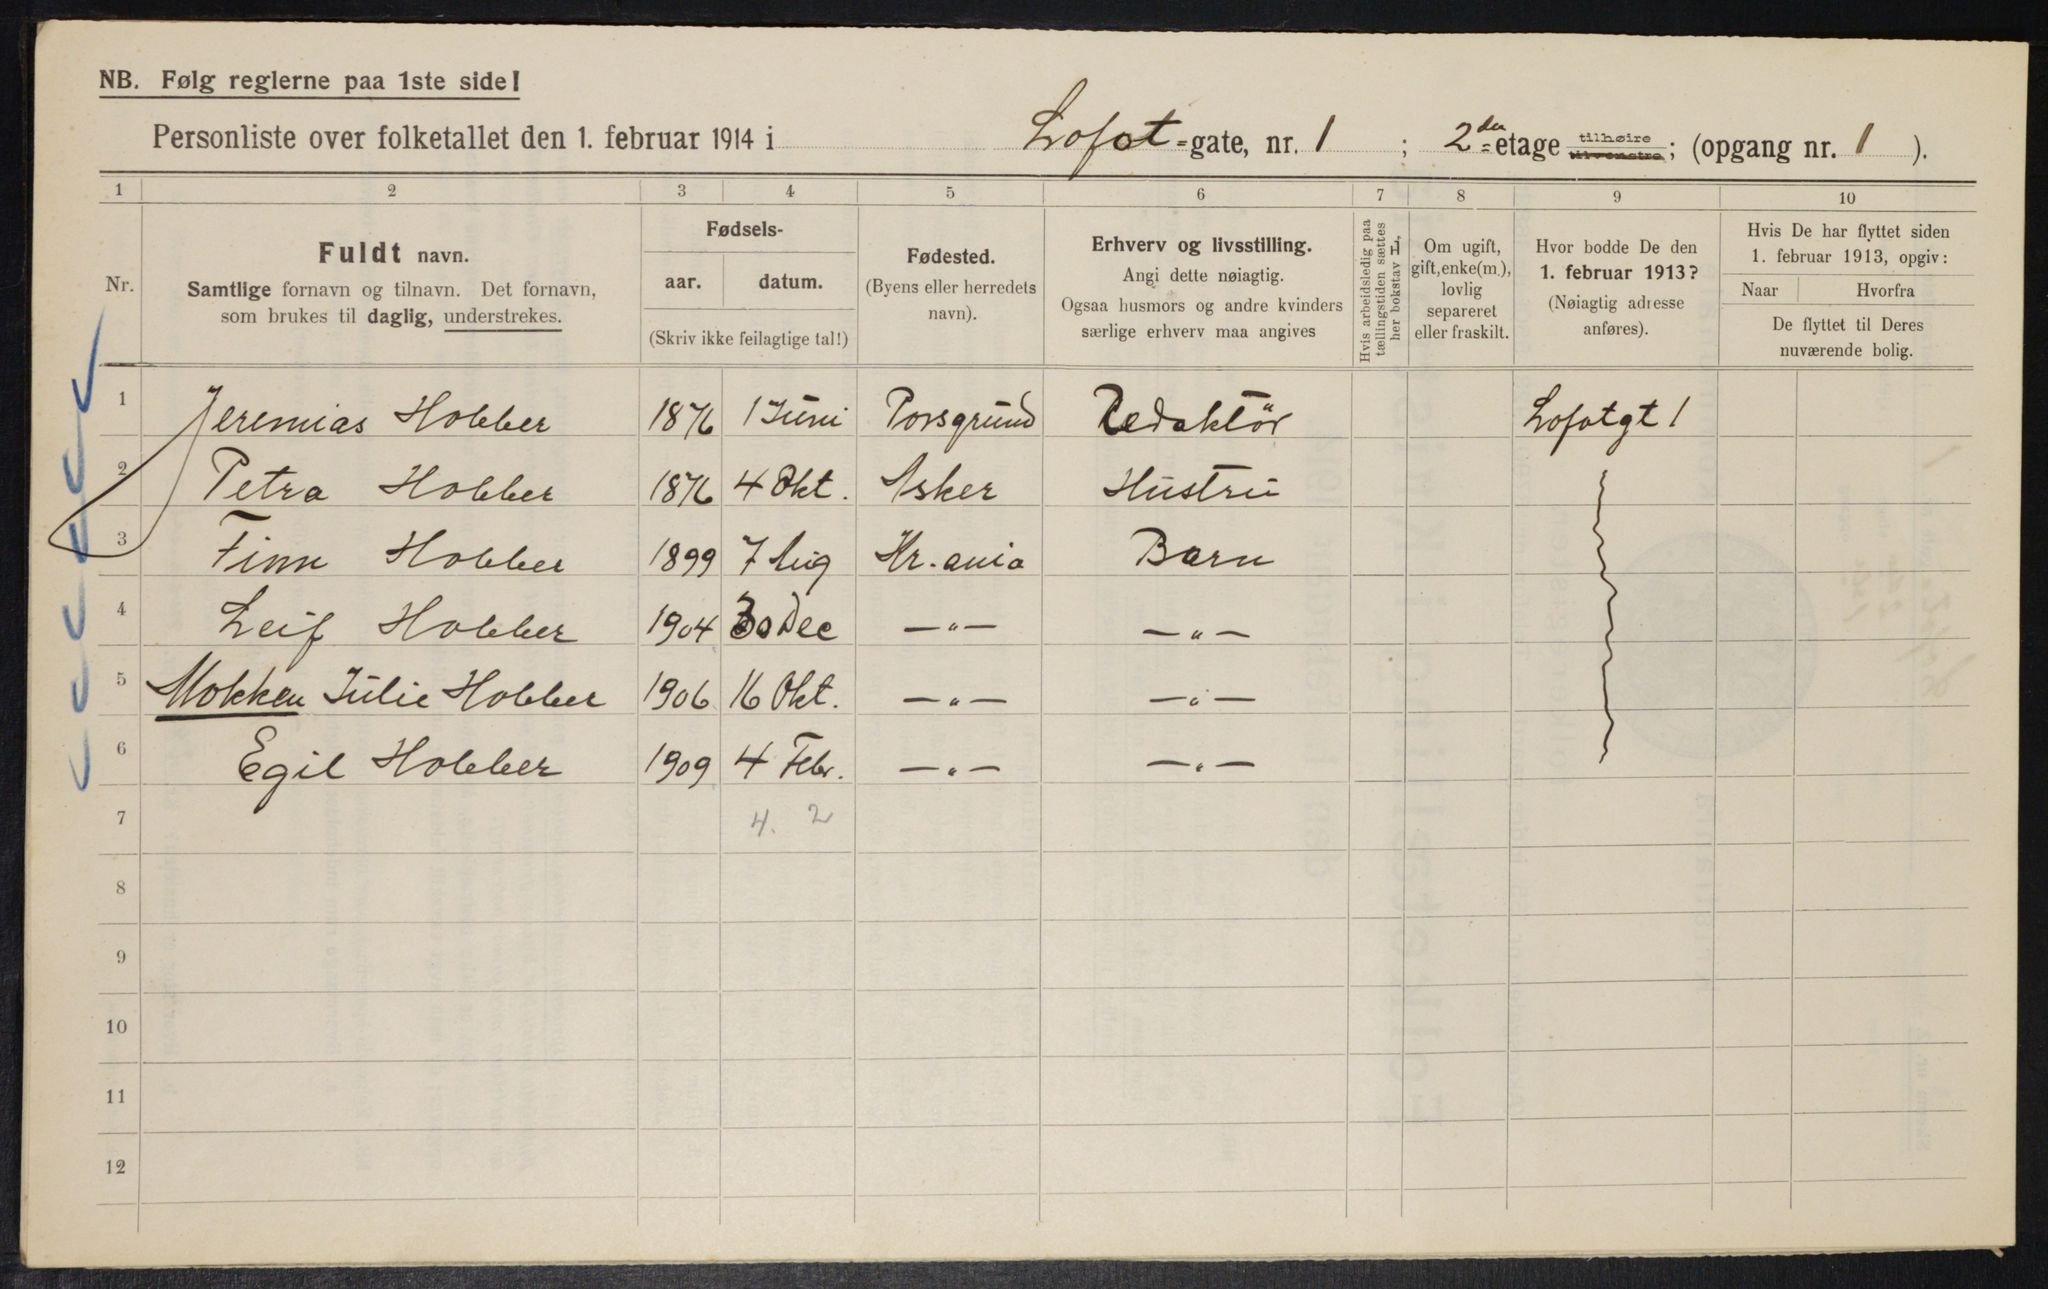 NB. Følg reglerne paa 1ste side!
Personliste over folketallet den 1. februar 1914 i Lofot-gate, nr. 1; 2den etage tilhøire tilvenstre; (opgang nr. 1).
1 2 3 4 5 6 7 8 9 10
Nr.
Fuldt navn.
Samtlige fornavn og tilnavn. Det fornavn,
som brukes til daglig, understrekes.
Fødsels-
aar. datum.
(Skriv ikke feilagtige tal!)
Fødested.
(Byens eller herredets
navn).
Erhverv og livsstilling.
Angi dette nøiagtig.
Ogsaa husmors og andre kvinders
særlige erhverv maa angives
Hvis arbeidsledig paa
tællingstiden sættes
her bokstav L,
Om ugift,
gift, enke(m.),
lovlig
separeret
eller fraskilt.
Hvor bodde De den
1. februar 1913?
(Nøiagtig adresse
anføres).
Hvis De har flyttet siden
1. februar 1913, opgiv:
Naar Hvorfra
De flyttet til Deres
nuværende bolig.
1 Jeremias Hobber 1876 1 Juni Porsgrund Redaktör Lofotgt 1
2 Petra Hobber 1876 4 Okt. Asker Hustru
3 Finn Hobber 1899 7 Aug Kr.ania Barn
4 Leif Hobber 1904 30 Dec —"— —"—
5 Mokken Julie Hobber 1906 16 Okt. —"— —"—
6 Egil Hobber 1909 4 Febr. —"— —"—
7 4. 2
8
9
10
11
12